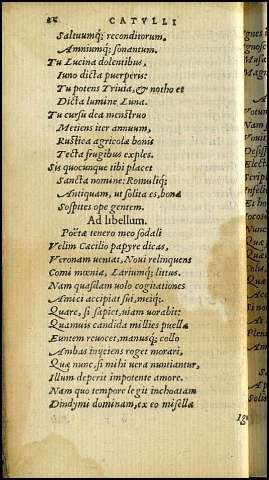 26 CATVLLI
Saltuumq; reconditorum.
Amniumq; sonantum.
Tu Lucina dolentibus,
Iuno dicta puerperis:
Tu potens Triuia, & notho es
Dicta lumine Luna.
Tu cursu dea menstruo
Metiens iter annuum,
Rustica agricolæ bonis
Tecta frugibus exples.
Sis quocunque tibi placet
Sancta nomine: Romuliq;
Antiquam, ut solita es, bona
Sospites ope gentem.
Ad libellum.
Poëtæ tenero meo sodali
Velim Cæcilio papyre dicas,
Veronam ueniat, Noui relinquens
Comi mœnia, Lariumq; littus.
Nam quasdam uolo cogitationes
Amici accipiat sui, meiq;.
Quare, si sapiet, uiam uorabit:
Quamuis candida millies puella
Euntem reuocet, manusq; collo
Ambas inijciens roget morari,
Quæ nunc, si mihi uera nuntiantur,
Illum deperit impotente amore.
Nam quo tempore legit inchoatam
Dindymi dominam, ex eo misellæ
Ig